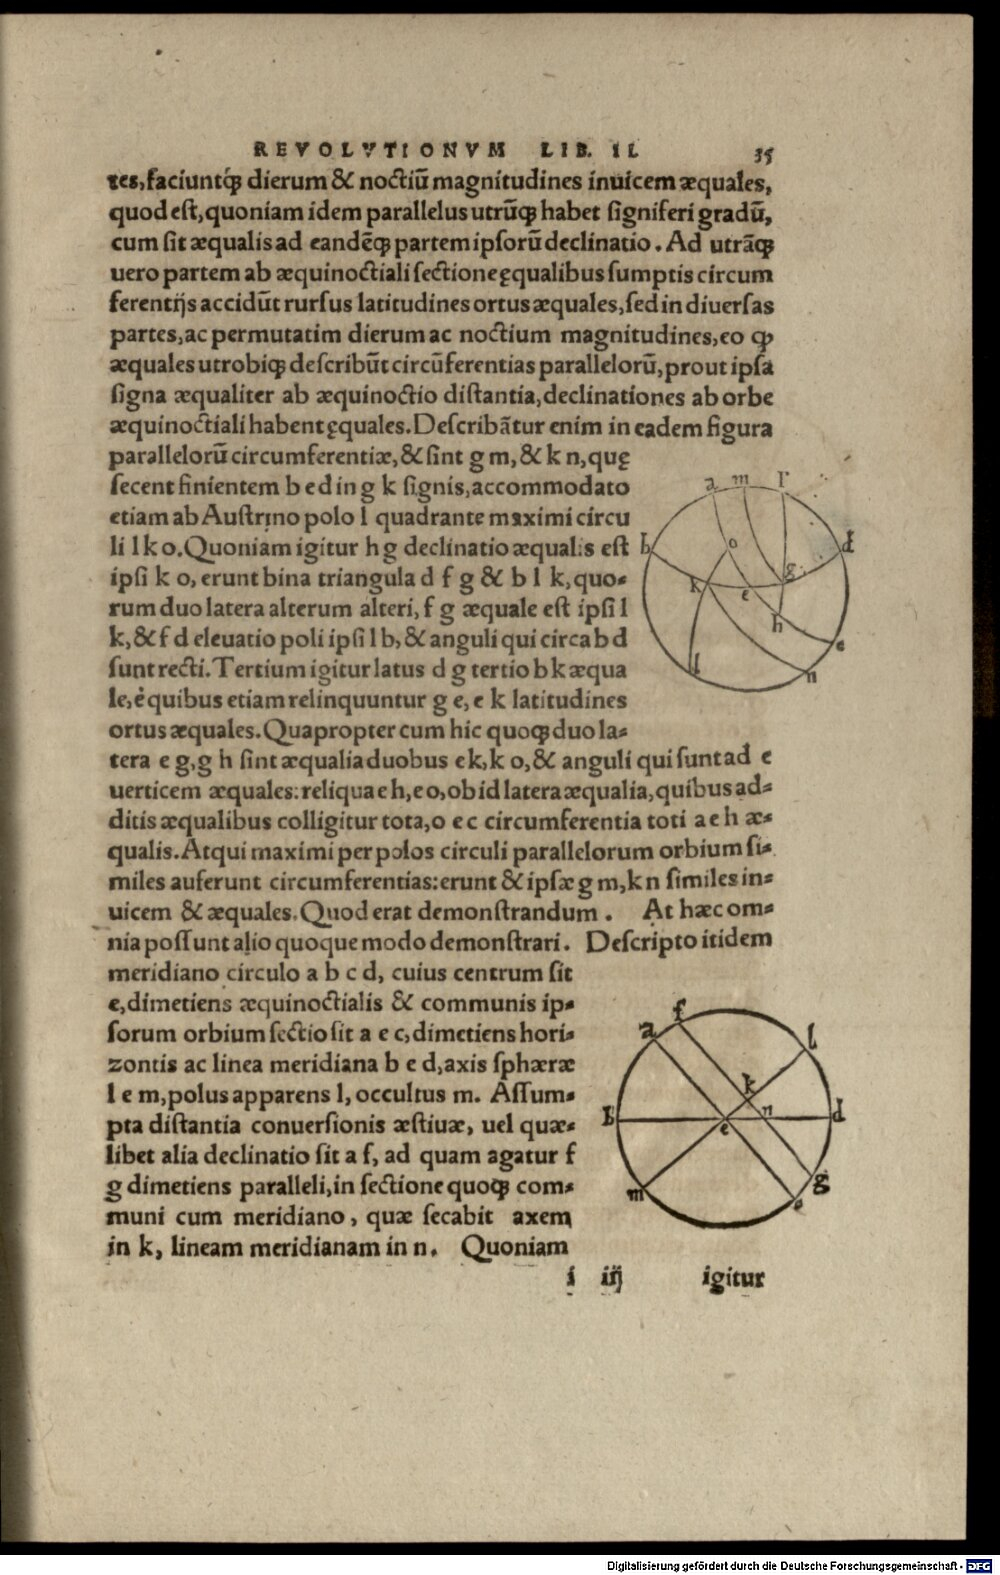 REVOLVTIONVM LIB. II. 35
tes, faciuntq́; dierum & noctiũ magnitudines inuicem æquales,
quod est, quoniam idem parallelus utrũq; habet signiferi gradũ,
cum sit æqualis ad eandẽq; partem ipsorũ declinatio. Ad utrãq;
uero partem ab æquinoctiali sectione ęqualibus sumptis circum
ferentijs accidũt rursus latitudines ortus æquales, sed in diuersas
partes, ac permutatim dierum ac noctium magnitudines, eo ꝙ
æquales utrobiq; describũt circũferentias parallelorũ, prout ipsa
signa æqualiter ab æquinoctio distantia, declinationes ab orbe
æquinoctiali habent ęquales. Describãtur enim in eadem figura
parallelorũ circumferentiæ, & sint g m, & k n, quę
secent finientem b e d in g k signis, accommodato
etiam ab Austrino polo l quadrante maximi circu
li l k o. Quoniam igitur h g declinatio æqualis est
ipsi k o, erunt bina triangula d f g & b l k, quo-
rum duo latera alterum alteri, f g æquale est ipsi l
k, & f d eleuatio poli ipsi l b, & anguli qui circa b d
sunt recti. Tertium igitur latus d g tertio b k æqua
le, è quibus etiam relinquuntur g e, e k latitudines
ortus æquales. Quapropter cum hic quoq; duo la-
tera e g, g h sint æqualia duobus e k, k o, & anguli qui sunt ad e
uerticem æquales: reliqua e h, e o, ob id latera æqualia, quibus ad-
ditis æqualibus colligitur tota, o e c circumferentia toti a e h æ-
qualis. Atqui maximi per polos circuli parallelorum orbium si-
miles auferunt circumferentias: erunt & ipsæ g m, k n similes in-
uicem & æquales. Quod erat demonstrandum. At hæc om-
nia possunt alio quoque modo demonstrari. Descripto itidem
meridiano circulo a b c d, cuius centrum sit
e, dimetiens æquinoctialis & communis ip-
sorum orbium sectio sit a e c, dimetiens hori-
zontis ac linea meridiana b e d, axis sphæræ
l e m, polus apparens l, occultus m. Assum-
pta distantia conuersionis æstiuæ, uel quæ-
libet alia declinatio sit a f, ad quam agatur f
g dimetiens paralleli, in sectione quoq; com-
muni cum meridiano, quæ secabit axem
in k, lineam meridianam in n. Quoniam
i iij igitur
a m f
b o d
k e g
h
c
l n
f
a l
k
b e n d
m g
c
Digitalisierung gefördert durch die Deutsche Forschungsgemeinschaft - DFG